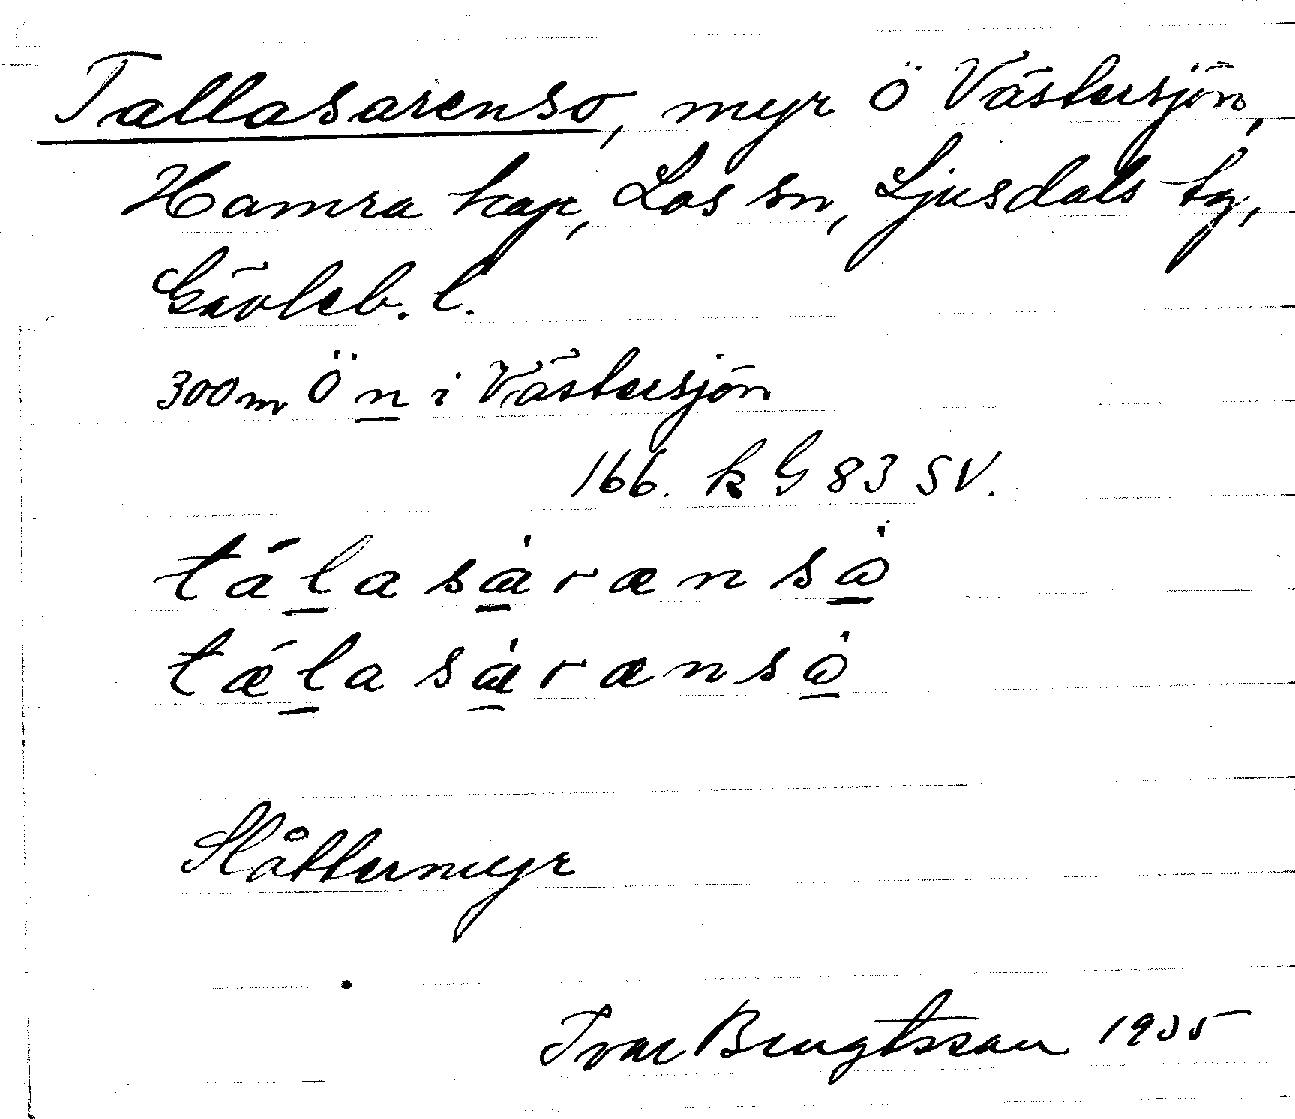 Tallasarenso, myr Ö Västersjön,
Hamra kap, Los sn, Ljusdals tg,
Gävleb. l.
300 m Ö n i Västersjön
166. k G 83 SV.
tálasàrænsȧ̀
tǽlasàrænsȧ̀
Slåttermyr
Ivar Bengtsson 1935